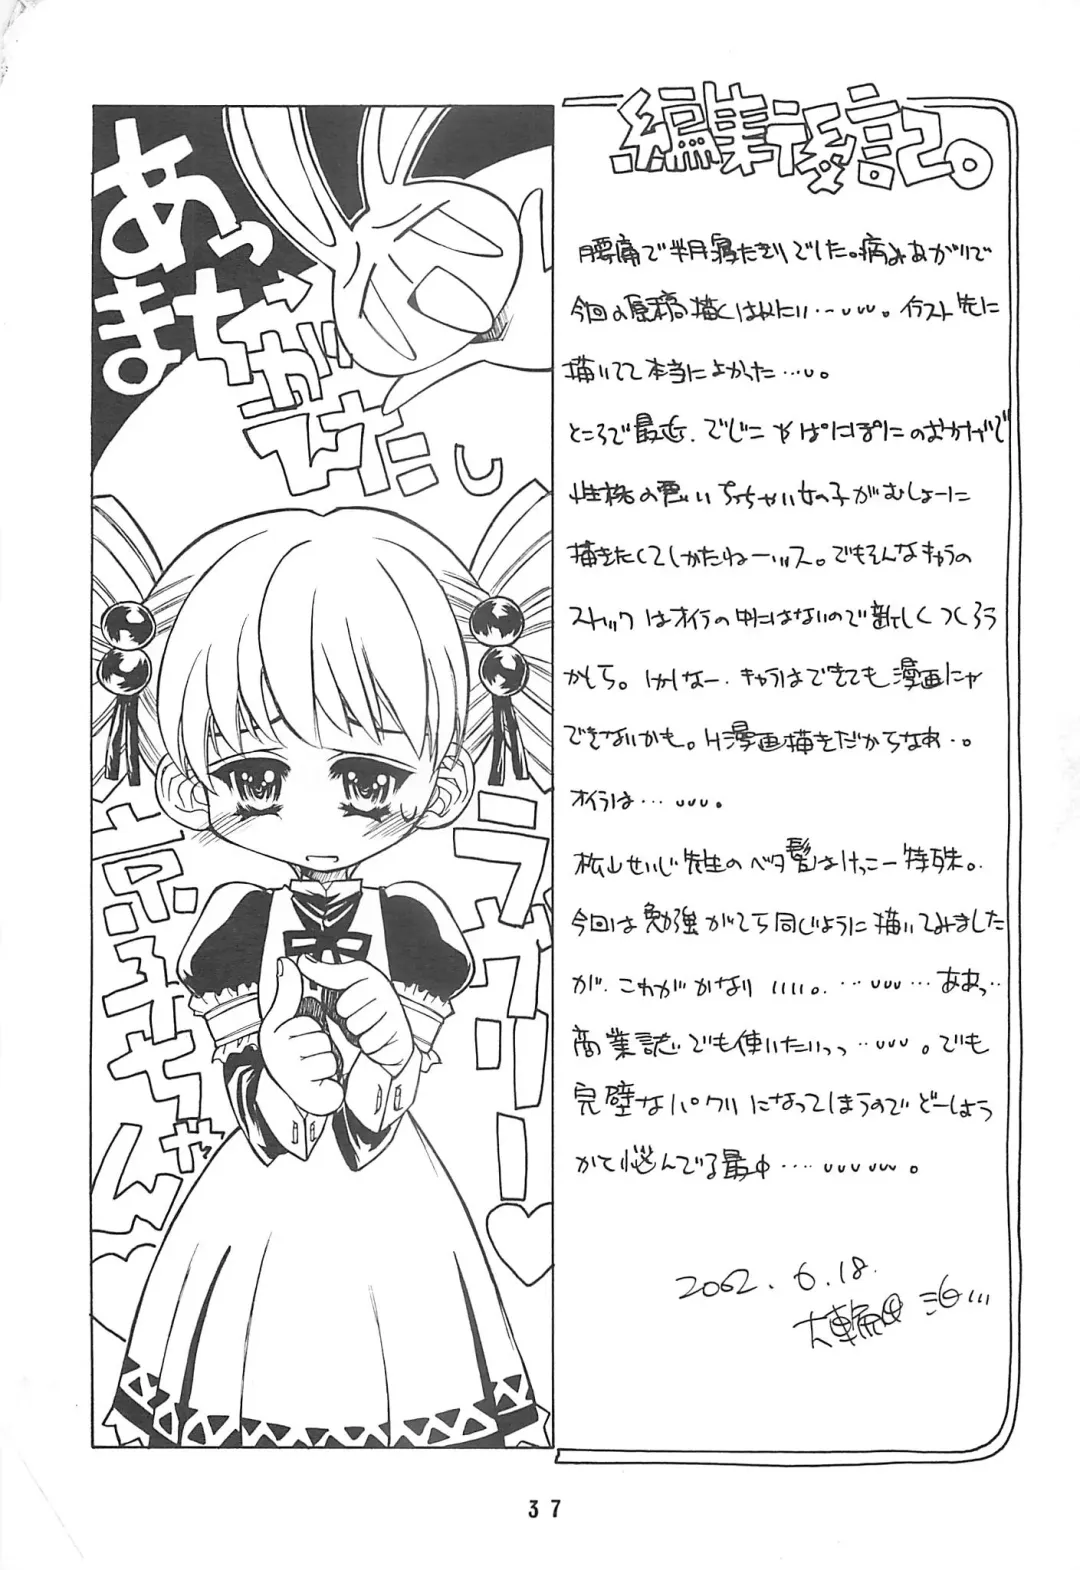 編集後記。
腰痛で半月寝たきりでした。病みあがりで
今回の原稿描くはめに…
イラスト先に
描いてて本当によかった…。
ところで最近、でじこやぱにぽにのおかげで
性格の悪いちっちゃい女の子がむしょーに
描きたくてしかたねーッス。でもそんなキャラの
ストックはオイラの中にはないので新しくつくろう
かしら。しかしなー、キャラはできても漫画にゃ
できないかも。H漫画描きだからなぁ…。
オイラは……。
松山せいじ先生のベタ髪はけっこー特殊。
今回は勉強がてら同じように描いてみました
が、これがかなりイイ。……ああっ…
商業誌でも使いたいっっ……。でも
完璧なパクリになってしまうのでどーしよう
かて悩んでる最中………。
2002.6.18.
大輪田
あっ
まちがえた
ラブリー
京子ちゃん
37